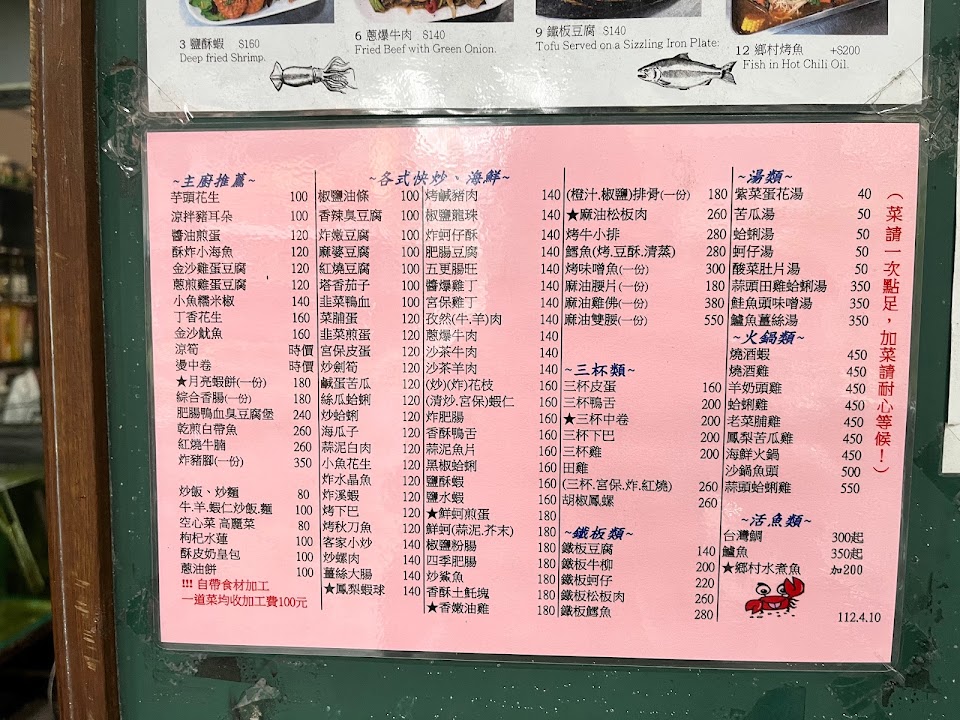 3 鹽酥蝦 S160
Deep fried Shrimp.
6 蔥爆牛肉 S140
Fried Beef with Green Onion.
9 鐵板豆腐 S140
Tofu Served on a Sizzling Iron Plate:
12 鄉村烤魚 +S200
Fish in Hot Chili Oil.
~主廚推薦~
芋頭花生 100
涼拌豬耳朵 100
醬油煎蛋 120
酥炸小海魚 120
金沙雞蛋豆腐 120
蔥煎雞蛋豆腐 120
小魚糯米椒 140
丁香花生 160
金沙魷魚 160
涼筍 時價
燙中卷 時價
★月亮蝦餅(一份) 180
綜合香腸(一份) 180
肥腸鴨血臭豆腐堡 240
乾煎白帶魚 260
紅燒牛腩 260
炸豬腳(一份) 350
炒飯、炒麵 80
牛.羊.蝦仁炒飯.麵 100
空心菜 高麗菜 80
枸杞水蓮 100
酥皮奶皇包 100
蔥油餅 100
!!! 自帶食材加工
一道菜均收加工費100元
~各式快炒、海鮮~
椒鹽油條 100
香辣臭豆腐 100
炸嫩豆腐 100
麻婆豆腐 100
紅燒豆腐 100
塔香茄子 100
韭菜鴨血 100
菜脯蛋 100
韭菜煎蛋 100
宮保皮蛋 120
炒劍筍 120
鹹蛋苦瓜 120
絲瓜蛤蜊 120
炒蛤蜊 120
海瓜子 120
蒜泥白肉 120
小魚花生 120
炸水晶魚 120
炸溪蝦 120
烤下巴 120
烤秋刀魚 120
客家小炒 140
炒螺肉 140
薑絲大腸 140
★鳳梨蝦球 140
烤鹹豬肉 140
椒鹽龍珠 140
炸蚵仔酥 140
肥腸豆腐 140
五更腸旺 140
醬爆雞丁 140
宮保雞丁 140
孜然(牛.羊)肉 140
蔥爆牛肉 140
沙茶牛肉 140
沙茶羊肉 140
(炒)(炸)花枝 160
(清炒.宮保)蝦仁 160
炸肥腸 160
香酥鴨舌 160
蒜泥魚片 160
黑椒蛤蜊 160
鹽酥蝦 160
鹽水蝦 160
★鮮蚵煎蛋 180
鮮蚵(蒜泥.芥末) 180
椒鹽粉腸 180
四季肥腸 180
炒鯊魚 180
香酥土魠塊 180
★香嫩油雞 180
(橙汁.椒鹽)排骨(一份) 180
★麻油松板肉 260
烤牛小排 280
鱈魚(烤.豆酥.清蒸) 280
烤味噌魚(一份) 300
麻油腰片(一份) 180
麻油雞佛(一份) 380
麻油雙腰(一份) 550
~三杯類~
三杯皮蛋 160
三杯鴨舌 200
★三杯中卷 200
三杯下巴 200
三杯雞 200
田雞
(三杯.宮保.炸.紅燒) 260
胡椒鳳螺 260
~鐵板類~
鐵板豆腐 140
鐵板牛柳 200
鐵板蚵仔 220
鐵板松板肉 260
鐵板鱈魚 280
~湯類~
紫菜蛋花湯 40
苦瓜湯 50
蛤蜊湯 50
蚵仔湯 50
酸菜肚片湯 50
蒜頭田雞蛤蜊湯 350
鮭魚頭味噌湯 350
鱸魚薑絲湯 350
~火鍋類~
燒酒蝦 450
燒酒雞 450
羊奶頭雞 450
蛤蜊雞 450
老菜脯雞 450
鳳梨苦瓜雞 450
海鮮火鍋 450
沙鍋魚頭 500
蒜頭蛤蜊雞 550
~活魚類~
台灣鯛 300起
鱸魚 350起
★鄉村水煮魚 加200
112.4.10
(菜請一次點足，加菜請耐心等候！)